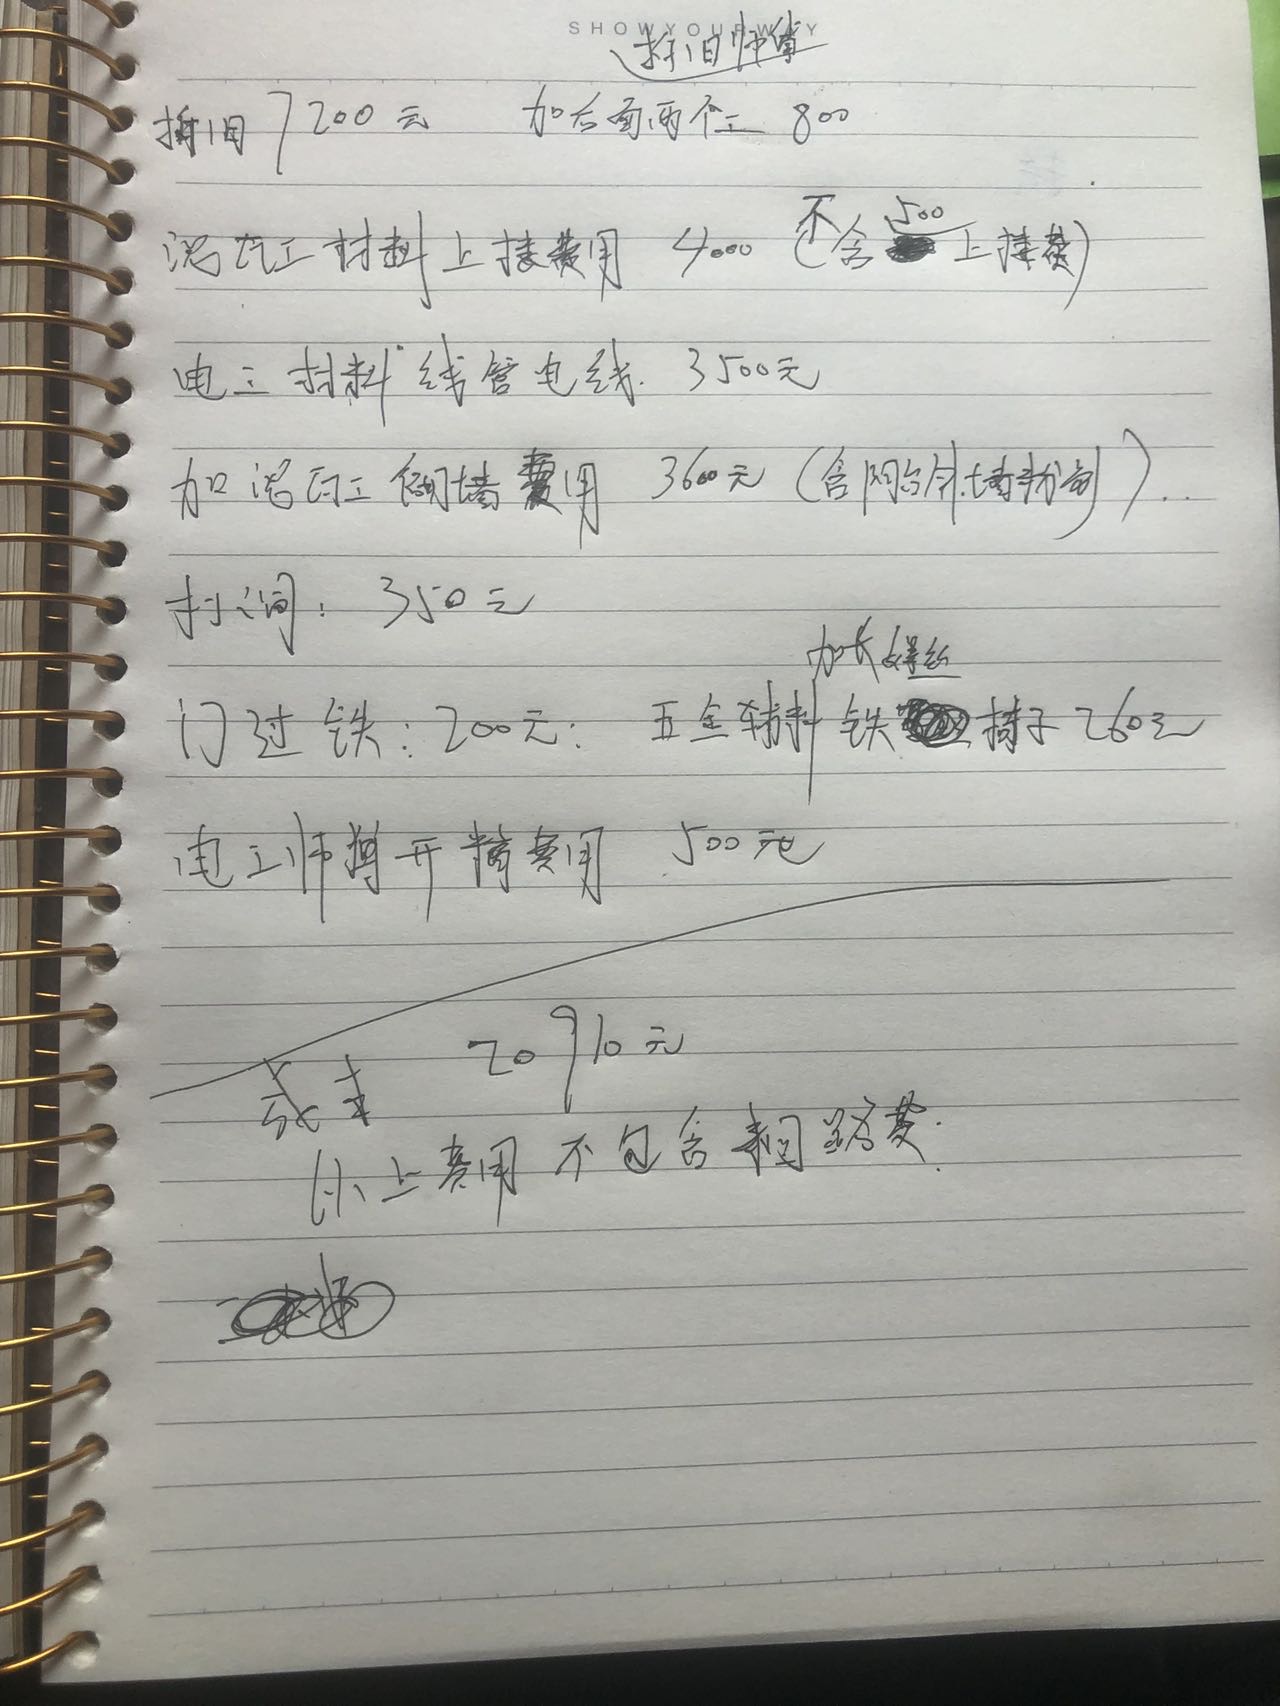 SHOWYOURWAY
拆旧师傅
拆旧7200元 加后面两个工 800
泥瓦工材料上楼费用 4000 (不含500上楼费)
电工材料 线管电线 3500元
加泥瓦工砌墙费用 3600元 (含阳台外墙粉刷)..
打洞: 350元
加长螺丝
门过铁: 200元: 五金辅料 铁梯子 260元
电工师傅开槽费用 500元
20910元
成本
以上费用不包含来回路费.